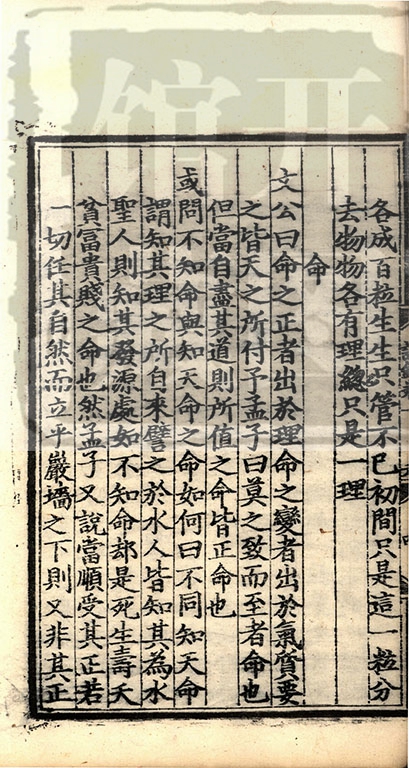 各成百粒生生只管不已初間只是這一粒分
去物物各有理總只是一理
命
文公曰命之正者出於理命之變者出於氣質要
之皆天之所付予孟子曰莫之致而至者命也
但當自盡其道則所值之命皆正命也
或問不知命與知天命之命如何曰不同知天命
謂知其理之所自來譬之於水人皆知其為水
聖人則知其發源處如不知命却是死生壽夭
貧冨貴賤之命也然孟子又說當順受其正若
一切任其自然而立乎巖墻之下則又非其正